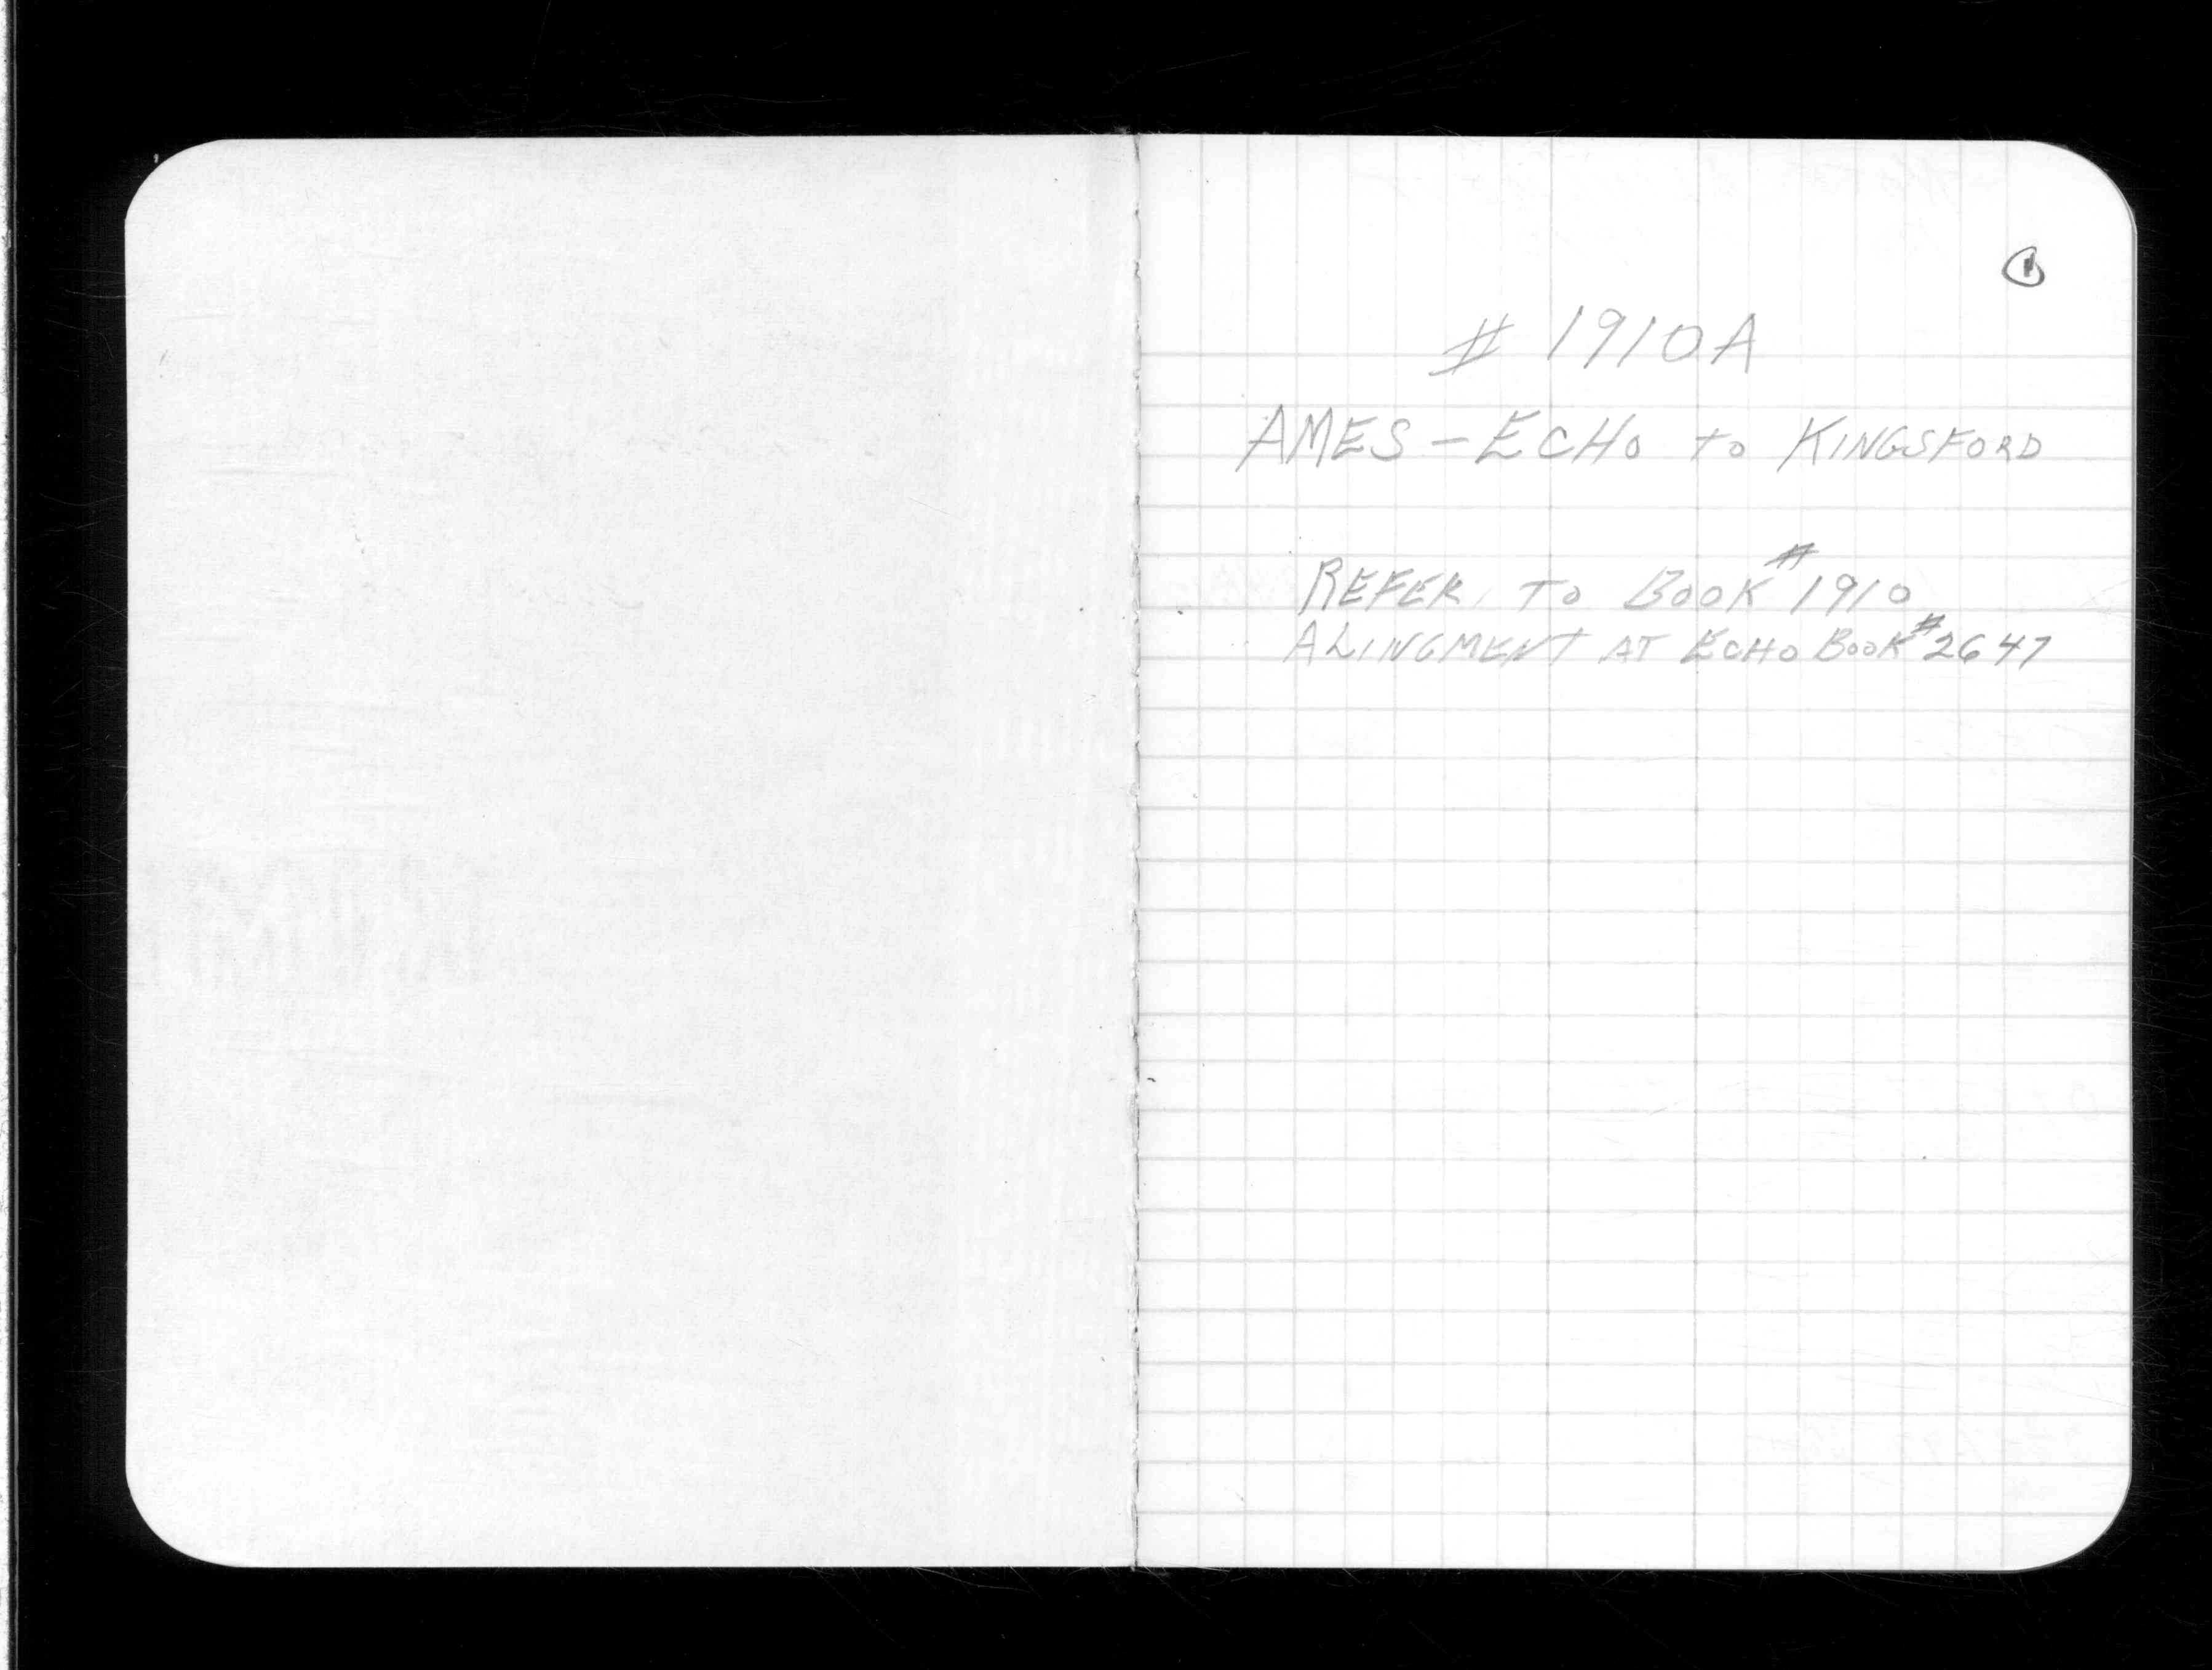 1
# 1910A
AMES - ECHO to KINGSFORD
REFER TO BOOK # 1910
ALINGMENT AT ECHO BOOK # 2647